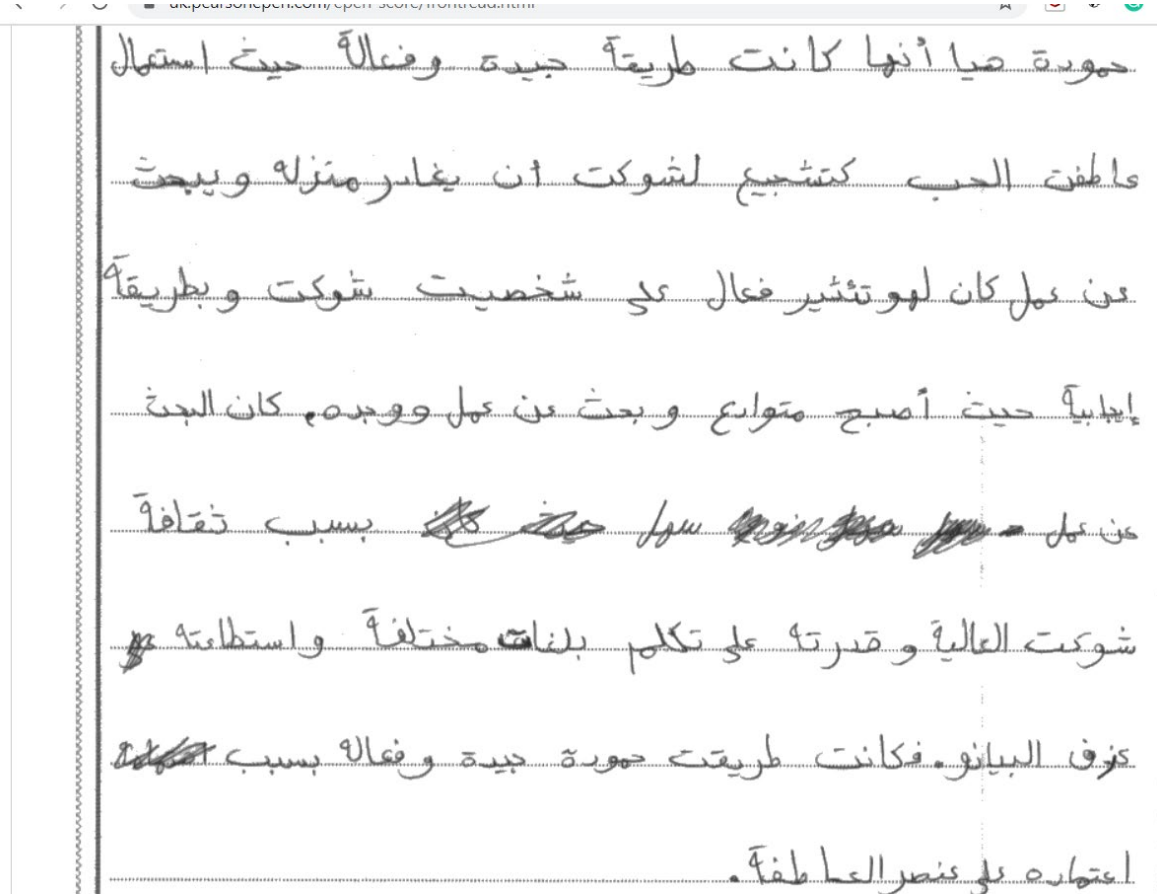 حمودة هيا أنها كانت طريقة جيدة وفعالة حيث استعمال
عاطفت الحب كتشجيع لشوكت ان يغادر منزله ويبحث
عن عمل كان لهو تئثير فعال على شخصيت شوكت و بطريقة
إيجابية حيث أصبح متواع و بحث عن عمل ووجده. كان البحث
عن عمل سهل بسبب ثقافة
شوكت العالية و قدرته على تكلم بلغات مختلفة واستطاعته
عزف البيانو. فكانت طريقت حمودة جيدة وفعالة بسبب
اعتماده على عنصر العاطفة.